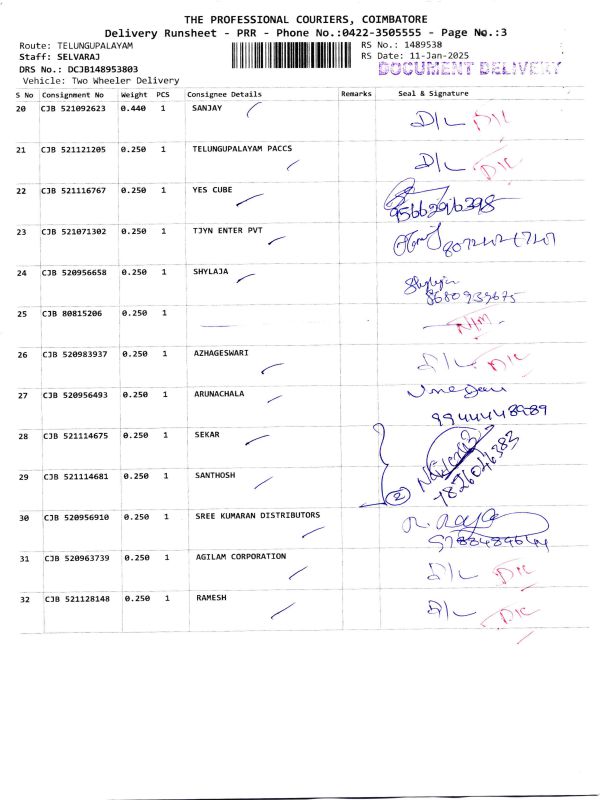 THE PROFESSIONAL COURIERS, COIMBATORE
Delivery Runsheet - PRR - Phone No.:0422-3505555 - Page No.:3
Route: TELUNGUPALAYAM RS No.: 1489538
Staff: SELVARAJ RS Date: 11-Jan-2025
DRS No.: DCJB148953803 DOCUMENT DELIVERY
Vehicle: Two Wheeler Delivery
S No Consignment No Weight PCS Consignee Details Remarks Seal & Signature
20 CJB 521092623 0.440 1 SANJAY D/L D/L
21 CJB 521121205 0.250 1 TELUNGUPALAYAM PACCS D/L D/L
22 CJB 521116767 0.250 1 YES CUBE
9566296398
23 CJB 521071302 0.250 1 TJYN ENTER PVT
24 CJB 520956658 0.250 1 SHYLAJA Shylaja
8680939675
25 CJB 80815206 0.250 1
26 CJB 520983937 0.250 1 AZHAGESWARI D/L D/L
27 CJB 520956493 0.250 1 ARUNACHALA
9944448989
28 CJB 521114675 0.250 1 SEKAR
29 CJB 521114681 0.250 1 SANTHOSH 2
30 CJB 520956910 0.250 1 SREE KUMARAN DISTRIBUTORS
31 CJB 520963739 0.250 1 AGILAM CORPORATION D/L D/L
32 CJB 521128148 0.250 1 RAMESH D/L D/L